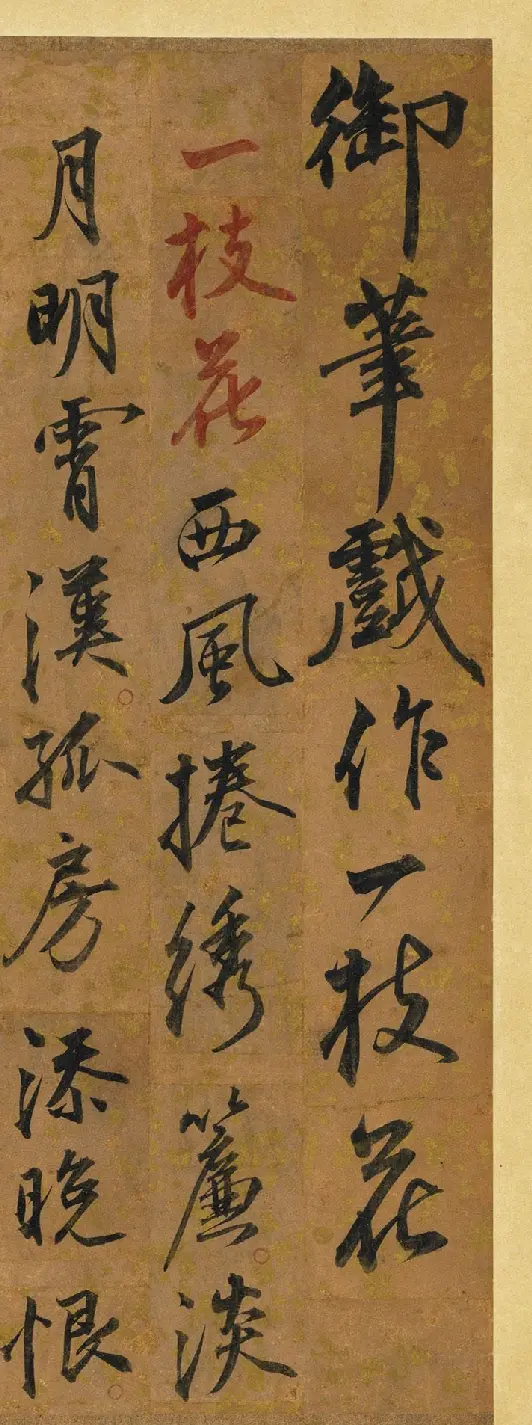 御筆戲作一枝花
一枝花西風捲綉簾淡
月明霄漢孤房添晚恨